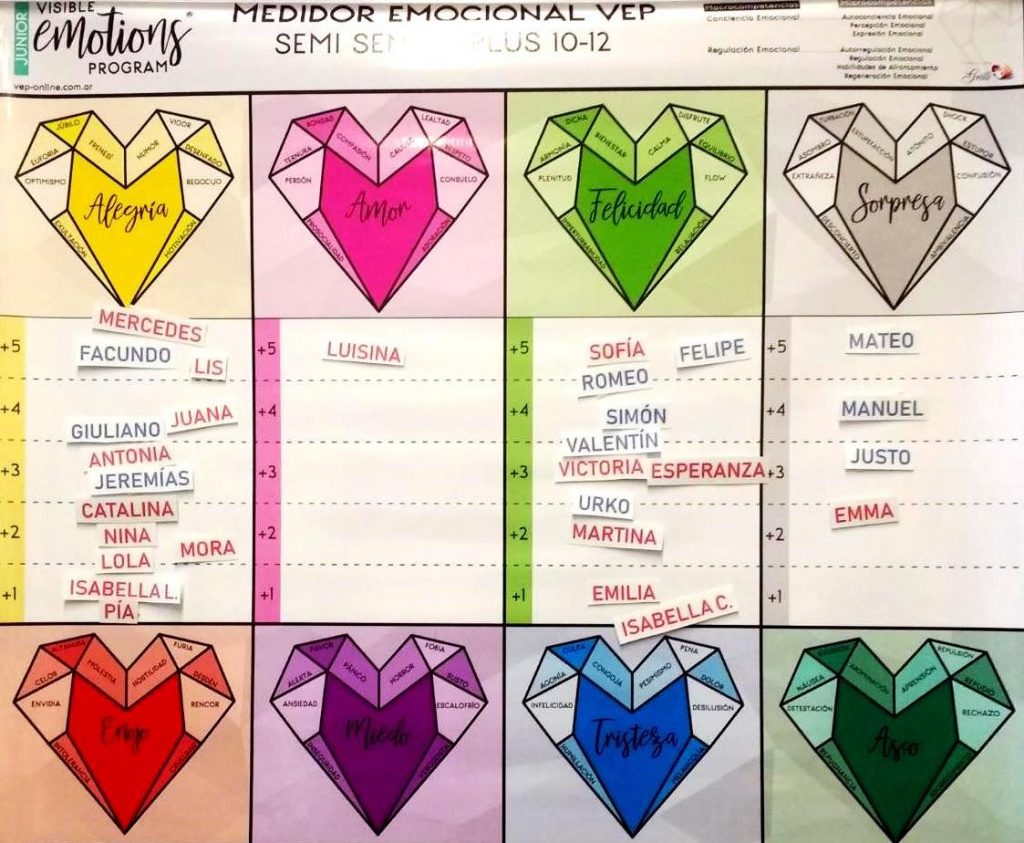 JUNIOR
VISIBLE
emotions®
PROGRAM
vep-online.com.ar
MEDIDOR EMOCIONAL VEP
SEMI SEN PLUS 10-12
Macrocompetencias
Conciencia Emocional
Regulación Emocional
Autoconciencia Emocional
Percepción Emocional
Expresión Emocional
Autorregulación Emocional
Regulación Emocional
Habilidades de Afrontamiento
Regeneración Emocional
Grilli
JÚBILO
VIGOR
EUFORIA
FRENESÍ
HUMOR
DESENFADO
OPTIMISMO
REGOCIJO
Alegría
EXULTACIÓN
MOTIVACIÓN
BONDAD
LEALTAD
TERNURA
COMPASIÓN
PERDÓN
CONSUELO
Amor
PROSOCIALIDAD
ADORACIÓN
DICHA
DISFRUTE
ARMONÍA
BIENESTAR
CALMA
EQUILIBRIO
PLENITUD
FLOW
Felicidad
IMPERTURBABILIDAD
RELAJACIÓN
TURBACIÓN
SHOCK
ASOMBRO
ESTUPEFACCIÓN
ATÓNITO
ESTUPOR
EXTRAÑEZA
CONFUSIÓN
Sorpresa
DESCONCIERTO
AMBIVALENCIA
+5
MERCEDES
FACUNDO
LIS
+4
JUANA
GIULIANO
+3
ANTONIA
JEREMÍAS
CATALINA
+2
NINA
MORA
LOLA
+1
ISABELLA L.
PÍA
+5
LUISINA
+4
+3
+2
+1
+5
SOFÍA
FELIPE
ROMEO
+4
SIMÓN
VALENTÍN
+3
VICTORIA
ESPERANZA
URKO
+2
MARTINA
+1
EMILIA
ISABELLA C.
+5
MATEO
+4
MANUEL
JUSTO
+3
EMMA
+2
+1
FURIA
CELOS
MOLESTIA
HOSTILIDAD
DESDÉN
ENVIDIA
RENCOR
Enojo
INTOLERANCIA
PAVOR
FOBIA
ALERTA
PÁNICO
HORROR
SUSTO
ANSIEDAD
ESCALOFRÍO
Miedo
INSEGURIDAD
CULPA
PENA
AGONÍA
CONGOJA
PESIMISMO
DOLOR
INFELICIDAD
DESILUSIÓN
Tristeza
HUMILLACIÓN
MELANCOLÍA
REPULSIÓN
NÁUSEA
ABOMINACIÓN
APRENSIÓN
REPUDIO
DETESTACIÓN
RECHAZO
Asco
REPUGNANCIA